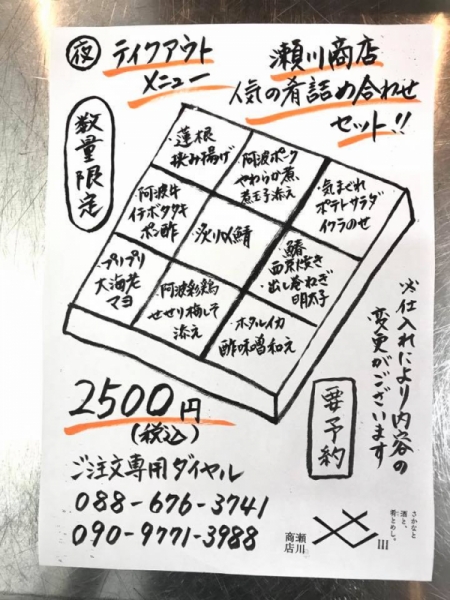 夜 テイクアウト
メニュー
瀬川商店
人気の肴詰め合わせ
セット!!
数量限定
・蓮根
挟み揚げ
阿波ポーク
やわらか煮、
煮玉子添え
・気まぐれ
ポテトサラダ
イクラのせ
・阿波牛
イチボタタキ
ポン酢
・炙り〆鯖
・鰆
西京焼き
・出し巻ねぎ
明太子
・プリプリ
大海老
マヨ
・阿波彩鶏
せせり梅しそ
添え
・ホタルイカ
酢味噌和え
※仕入れにより内容の
変更がございます
要予約
2500円
(税込)
ご注文専用ダイヤル
088-676-3741
090-9771-3988
瀬川
商店
さかなと
酒と、
肴とめし。